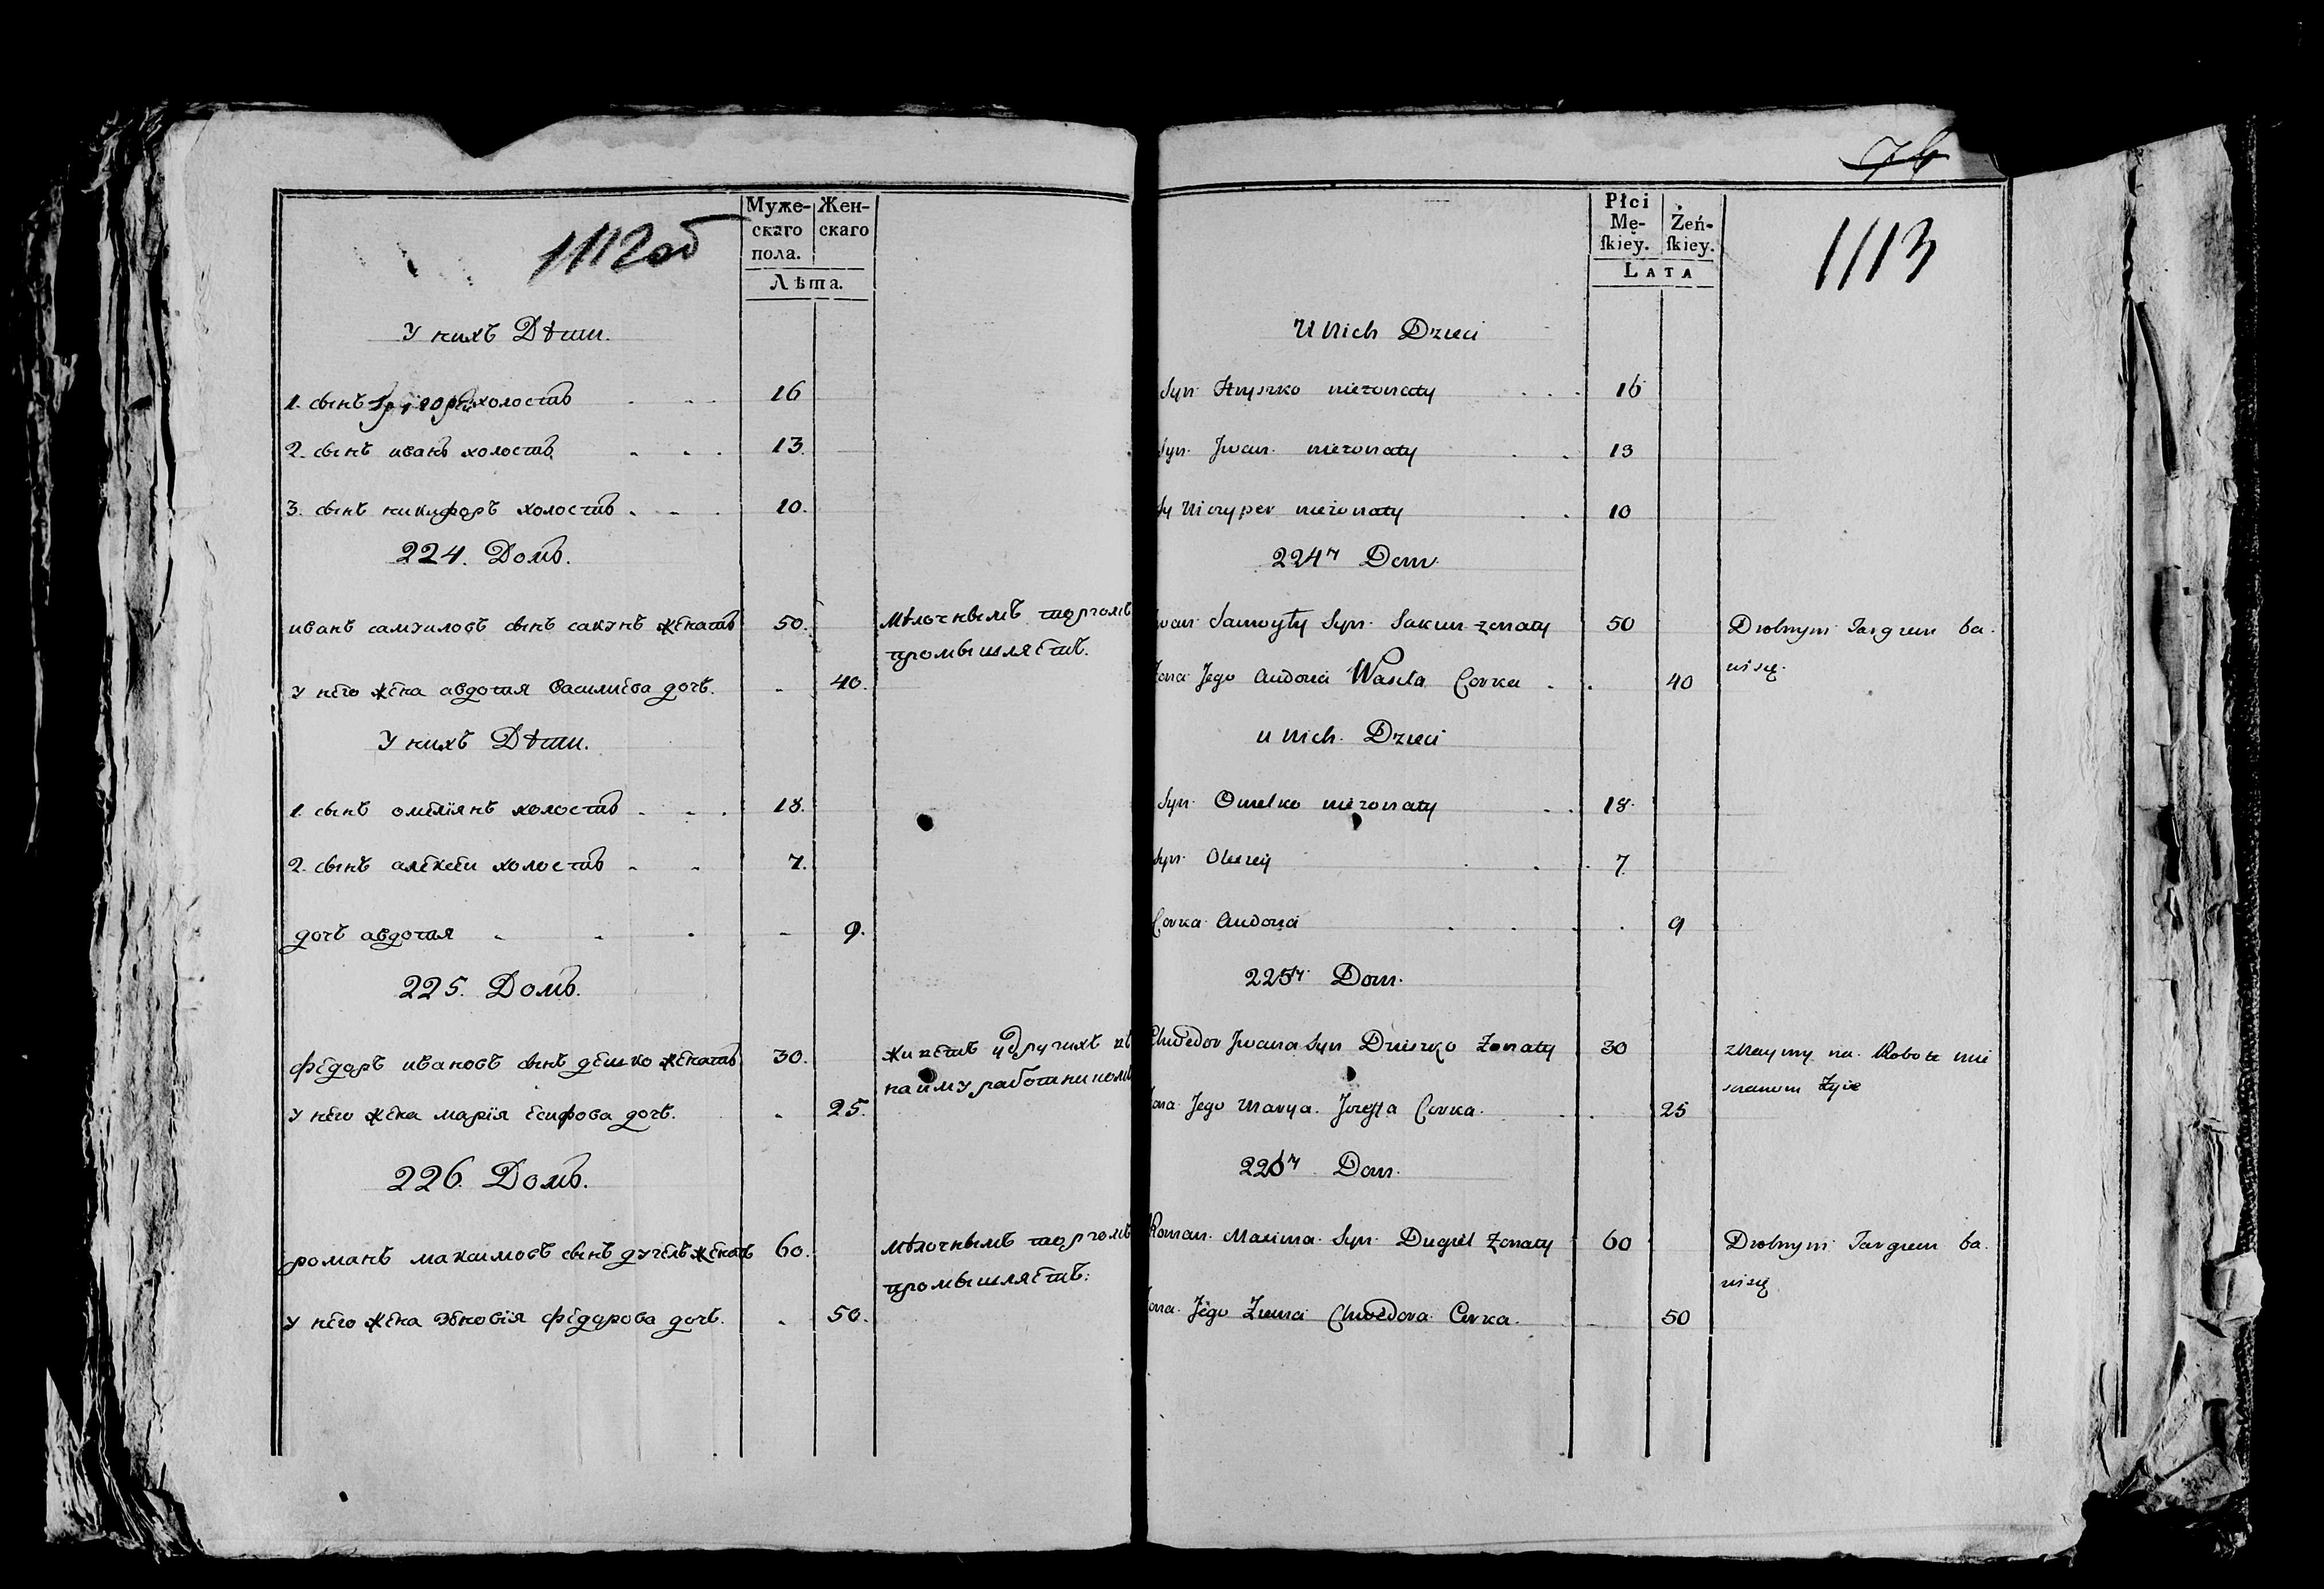 1112об
Муже-
скаго
пола.
Жен-
скаго
Лѣта.
У нихъ Дѣти.
1. сынъ Григорѣй холостъ 16
2. сынъ иванъ холостъ 13.
3. сынъ никифоръ холостъ 10.
224. Домъ.
иванъ самуиловъ сынъ сакунъ женатъ 50. мѣлочнымъ торгомъ
промышляетъ.
у него жена авдотия василиева дочь. 40.
У нихъ Дѣти.
1. сынъ омелиянъ холостъ 18.
2. сынъ алексеи холостъ 7.
дочь авдотия 9.
225. Домъ.
федоръ ивановъ сынъ дешко женатъ 30. живетъ у другихъ въ
найму работникомъ
у него жена марїя есифова дочь. 25.
226. Домъ.
романъ максимовъ сынъ дугель женатъ 60. мѣлочнымъ торгомъ
промышляетъ:
у него жена зѣновїя федорова дочь. 50.
76
Płci
Mę-
ſkiey.
Żeń-
ſkiey.
LATA
1113
U Nich Dzieci
Syn Hryszko niezonaty 16
Syn Jwan niezonaty 13
Sy Niczyper niezonaty 10
224ty Dom
Jwan Samoyły Syn Sakun zonaty 50 Drobnym Targiem ba.
wi się.
Zona Jego Audocia Wasila Corka 40
u Nich Dzieci
Syn Omelko niezonaty 18
Syn Olexiy 7
Corka Audocia 9
225ty Dom.
Chwedor Jwana Syn Dzieszko Zonaty 30 znaymy na Robote mie
szaniom żyie
Zona Jego Marya Jozeffa Corka 25
226ty Dom.
Roman Maxima Syn Dugiel Zonaty 60 Drobnym Targiem ba.
wi się
Zona Jego Zienia Chwedora Corka 50